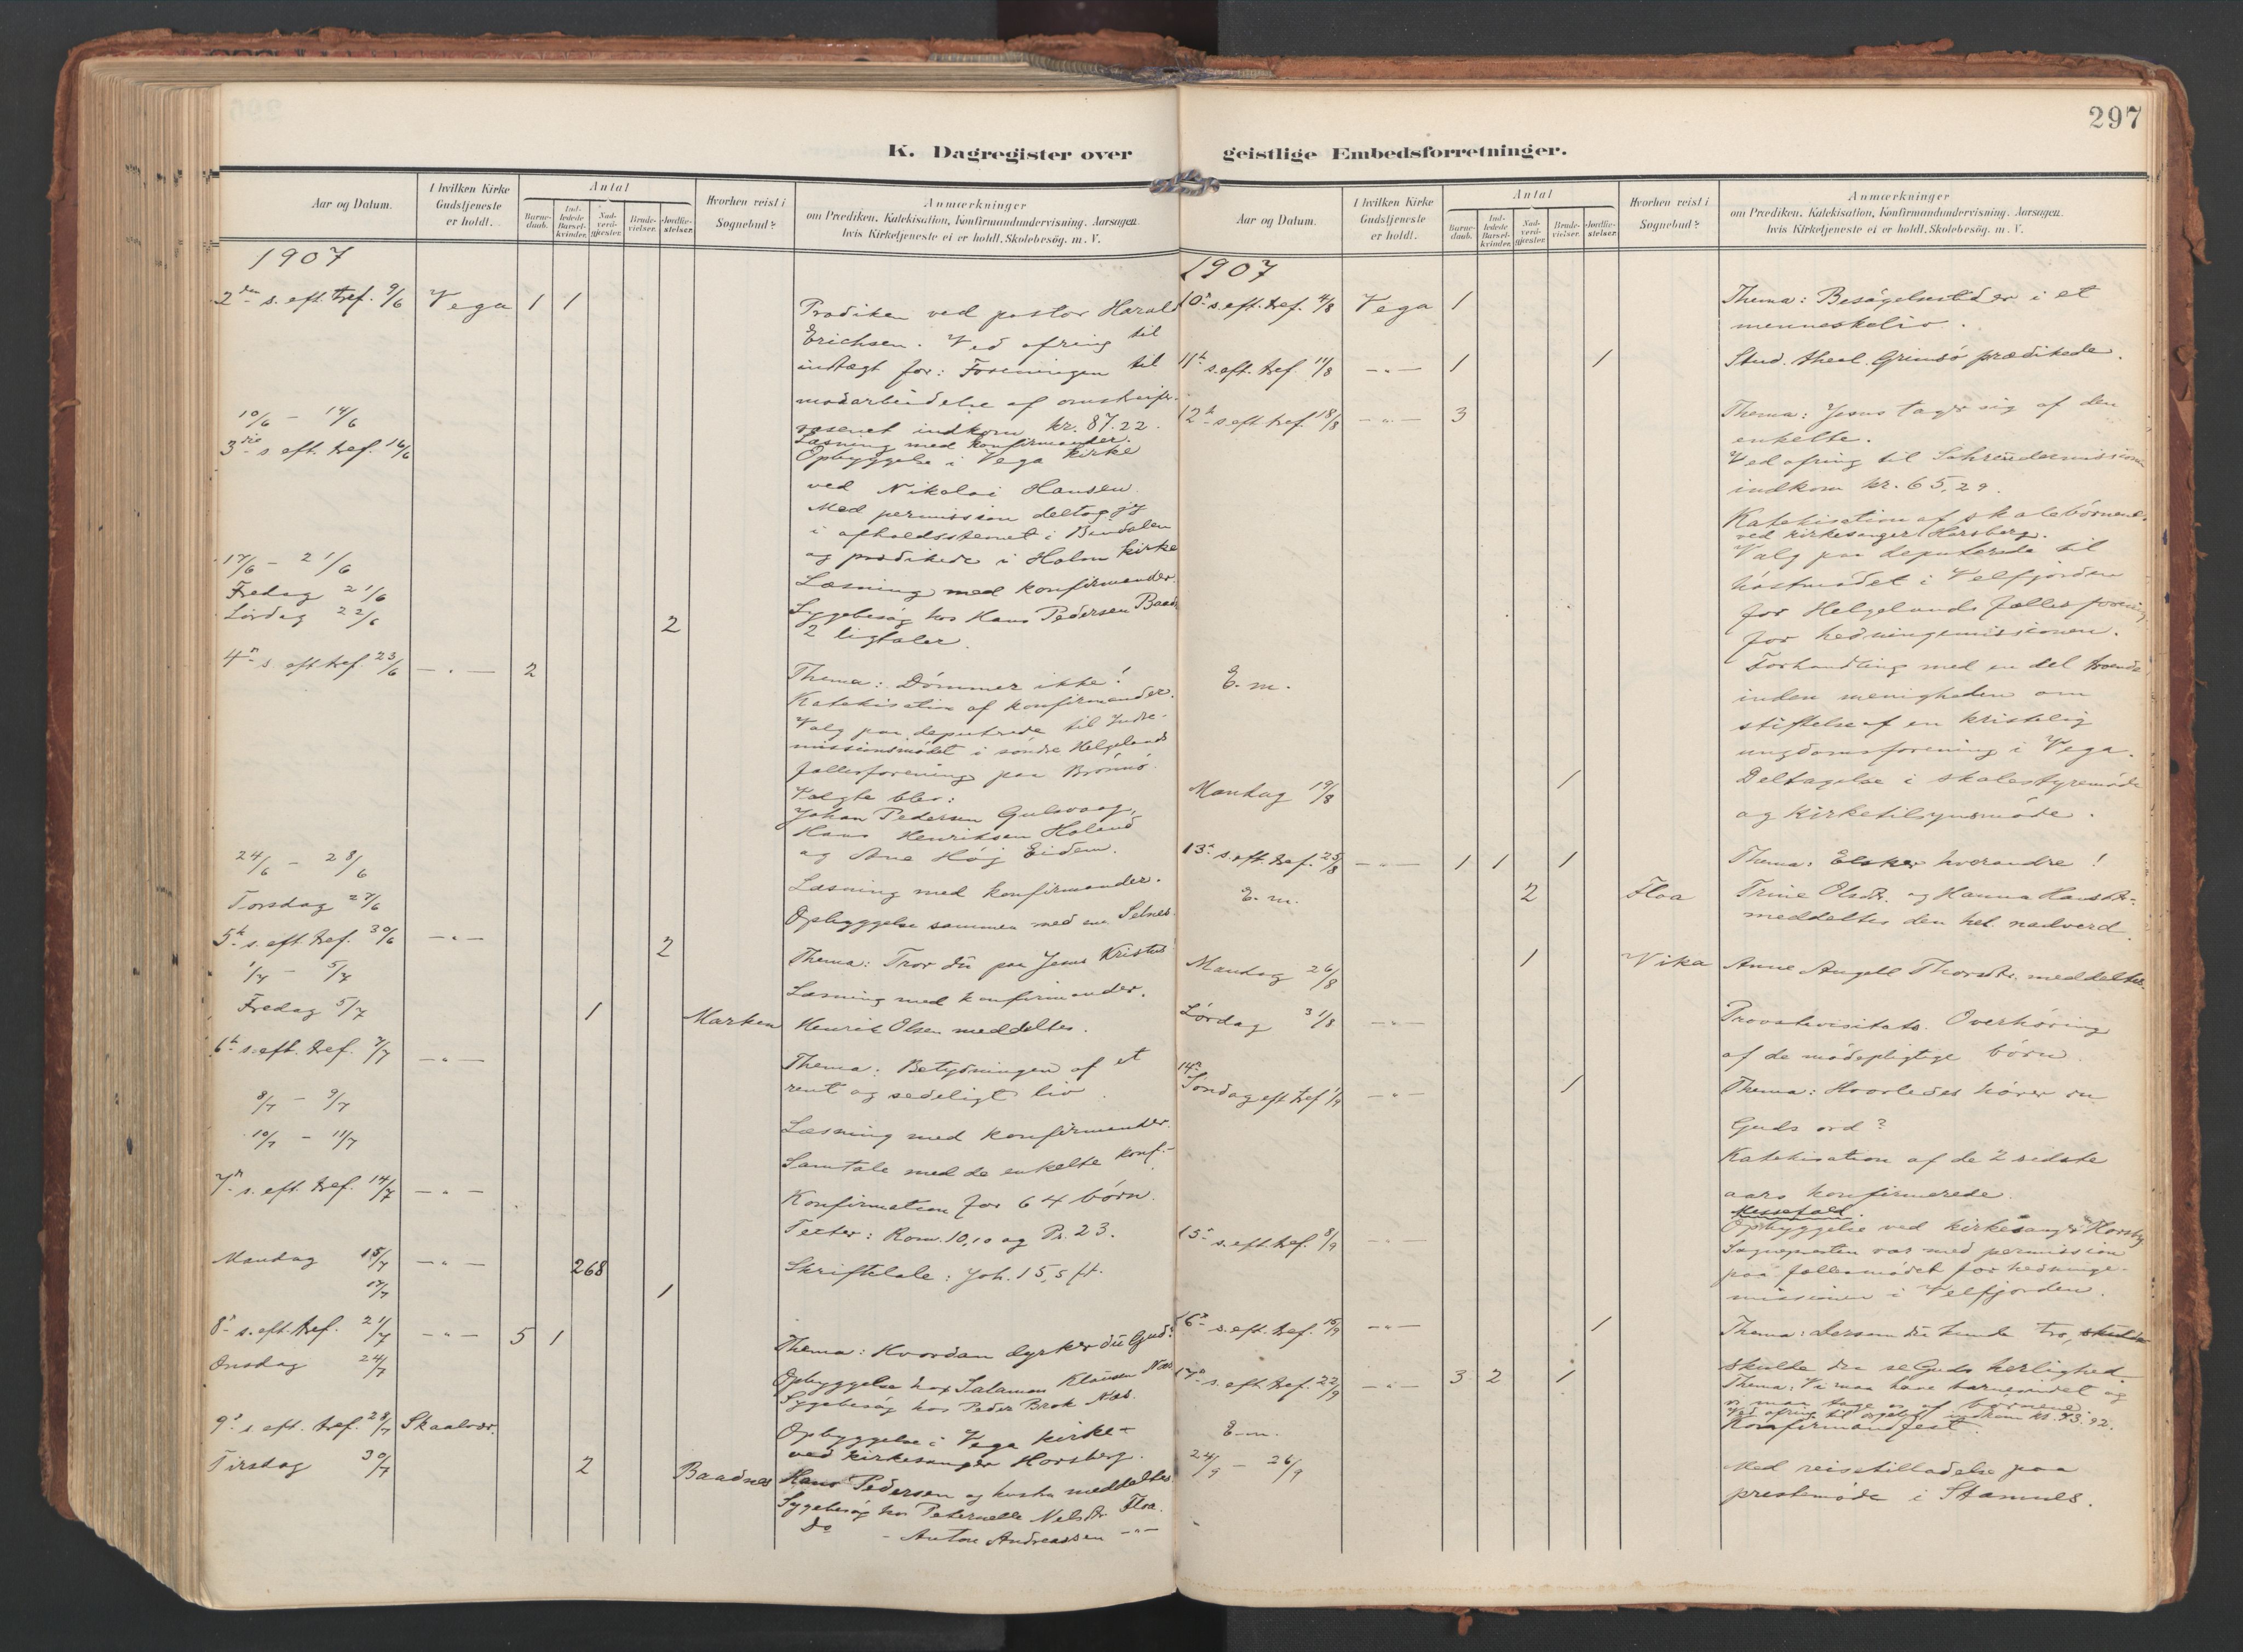 297
K. Dagregister over geistlige Embedsforretninger.
Aar og Datum.
I hvilken Kirke Gudstjeneste er holdt.
Antal
Barnedaab.
Indledede Barselkvinder.
Nadverdgjester.
Brudevielser.
Jordfæstelser.
Hvorhen reist i Sognebud?
Anmærkninger
om Prædiken, Katekisation, Konfirmandundervisning, Aarsagen
hvis Kirketjeneste ei er holdt, Skolebesøg. m. V.
1907
2den s. eft. tref. 9/6 Vega 1 1 Prædiken ved pastor Harald
Erichsen. Ved ofring til
indtægt for: Foreningen til
modarbeidelse af omstreifer-
væsenet indkom kr. 87.22.
10/6 - 14/6 Læsning med konfirmander.
3die s. eft. tref. 16/6 Opbyggelse i Vega kirke
ved Nikolai Hansen.
Med permission deltog jeg
i afholdsstevnet i Bindalen
og prædikede i Holm kirke
17/6 - 21/6 Læsning med konfirmander.
Fredag 21/6 Sygebesøg hos Hans Pedersen Baadn
Lørdag 22/6 2 2 ligtaler.
4de s. eft. tref. 23/6 - " - 2 Thema: Dømmer ikke!
Katekisation af konfirmander.
Valg paa deputerede til Indre-
missionsmødet i søndre Helgelands
fællesforening paa Brønnø.
Valgte blev:
Johan Pedersen Gulsvaag,
Hans Henriksen Holand
og Ane Høg Eidem.
24/6 - 28/6 Læsning med konfirmander.
Torsdag 27/6 Opbyggelse sammen med Selnes.
5te s. eft. tref. 30/6 - " - 2 Thema: Tror du paa Jesus Kristus
1/7 - 5/7 Læsning med konfirmander.
Fredag 5/7 1 Marken Henrik Olsen meddeltes.
6te s. eft. tref. 7/7 - " - Thema: Betydningen af et
rent og sedeligt liv.
8/7 - 9/7 Læsning med konfirmander.
10/7 - 11/7 Samtale med de enkelte konf.
7de s. eft. tref. 14/7 - " - Konfirmation for 64 børn.
Texter: Rom. 10,10 og Ps. 23.
Mandag 15/7 - " - 268 Skriftetale: Joh. 15,5 ff.
17/7 1
8de s. eft. tref. 21/7 - " - 5 1 Thema: Hvordan dyrker du Gud?
Onsdag 24/7 Opbyggelse hos Salamon Klausen Næs
Sygebesøg hos Peder Brok Næs.
9de s. eft. tref. 28/7 Skaalvær. Opbyggelse i Vega kirke
ved kirkesanger Horsberg.
Tirsdag 30/7 2 Baadnes Hans Pedersen og hustru meddeltes
Sygebesøg hos Peternelle Nelsdtr. Floa.
do - Anton Andreassen - " -
Aar og Datum.
I hvilken Kirke Gudstjeneste er holdt.
Antal
Barnedaab.
Indledede Barselkvinder.
Nadverdgjester.
Brudevielser.
Jordfæstelser.
Hvorhen reist i Sognebud?
Anmærkninger
om Prædiken, Katekisation, Konfirmandundervisning, Aarsagen
hvis Kirketjeneste ei er holdt, Skolebesøg. m. V.
1907
10de s. eft. tref. 4/8 Vega 1 Thema: Besøgelsestider i et
menneskeliv.
11te s. eft. tref. 11/8 - " - 1 1 Stud. theol. Grimsø prædikede.
12te s. eft. tref. 18/8 - " - 3 Thema: Jesus tager sig af den
enkelte.
Ved ofring til Sohreudermissionen
indkom kr. 65,29.
Katekisation af skolebørnene
ved kirkesanger Horsberg.
Valg paa deputerede til
høstmødet i Velfjorden
for Helgelands fællesforening
for hedningemissionen.
E. m. Forhandling med en del troende
inden menigheden om
stiftelse af en kristelig
ungdomsforening i Vega.
Mandag 19/8 1 Deltagelse i skolestyremøde
og kirketilsynsmøde.
13de s. eft. tref. 25/8 - " - 1 1 1 Thema: Elsker hverandre!
E. m. 2 Floa Trine Olsdtr. og Hanna Hansdtr.
meddeltes den hel. nadverd.
Mandag 26/8 1 Vika Anne Angell Thorsdtr. meddeltes.
Lørdag 31/8 - " - Provstevisitats. Overhøring
af de mødepligtige børn.
14de
Søndag eft. tref. 1/9 - " - 1 Thema: Hvorledes hører du
Guds ord?
Katekisation af de 2 sidste
aars konfirmerede.
Messefald.
15de s. eft. tref. 8/9 - " - Opbyggelse ved kirkesanger Horsby
Sognepresten var med permission
paa fællesmødet for hedninge-
missionen i Velfjorden.
16de s. eft. tref. 15/9 - " - 1 Thema: Dersom du kunde tro, skulde
skulde du se Guds herlighed.
17de s. eft. tref. 22/9 - " - 3 2 1 Thema: Vi maa have barnesindet og
vi maa tage os af børnene.
Ved ofring til orgelet indkom kr. 43.92.
E. m. Konfirmandfest.
24/9 - 26/9 Med reisetilladelse paa
prestemøde i Stamnes.